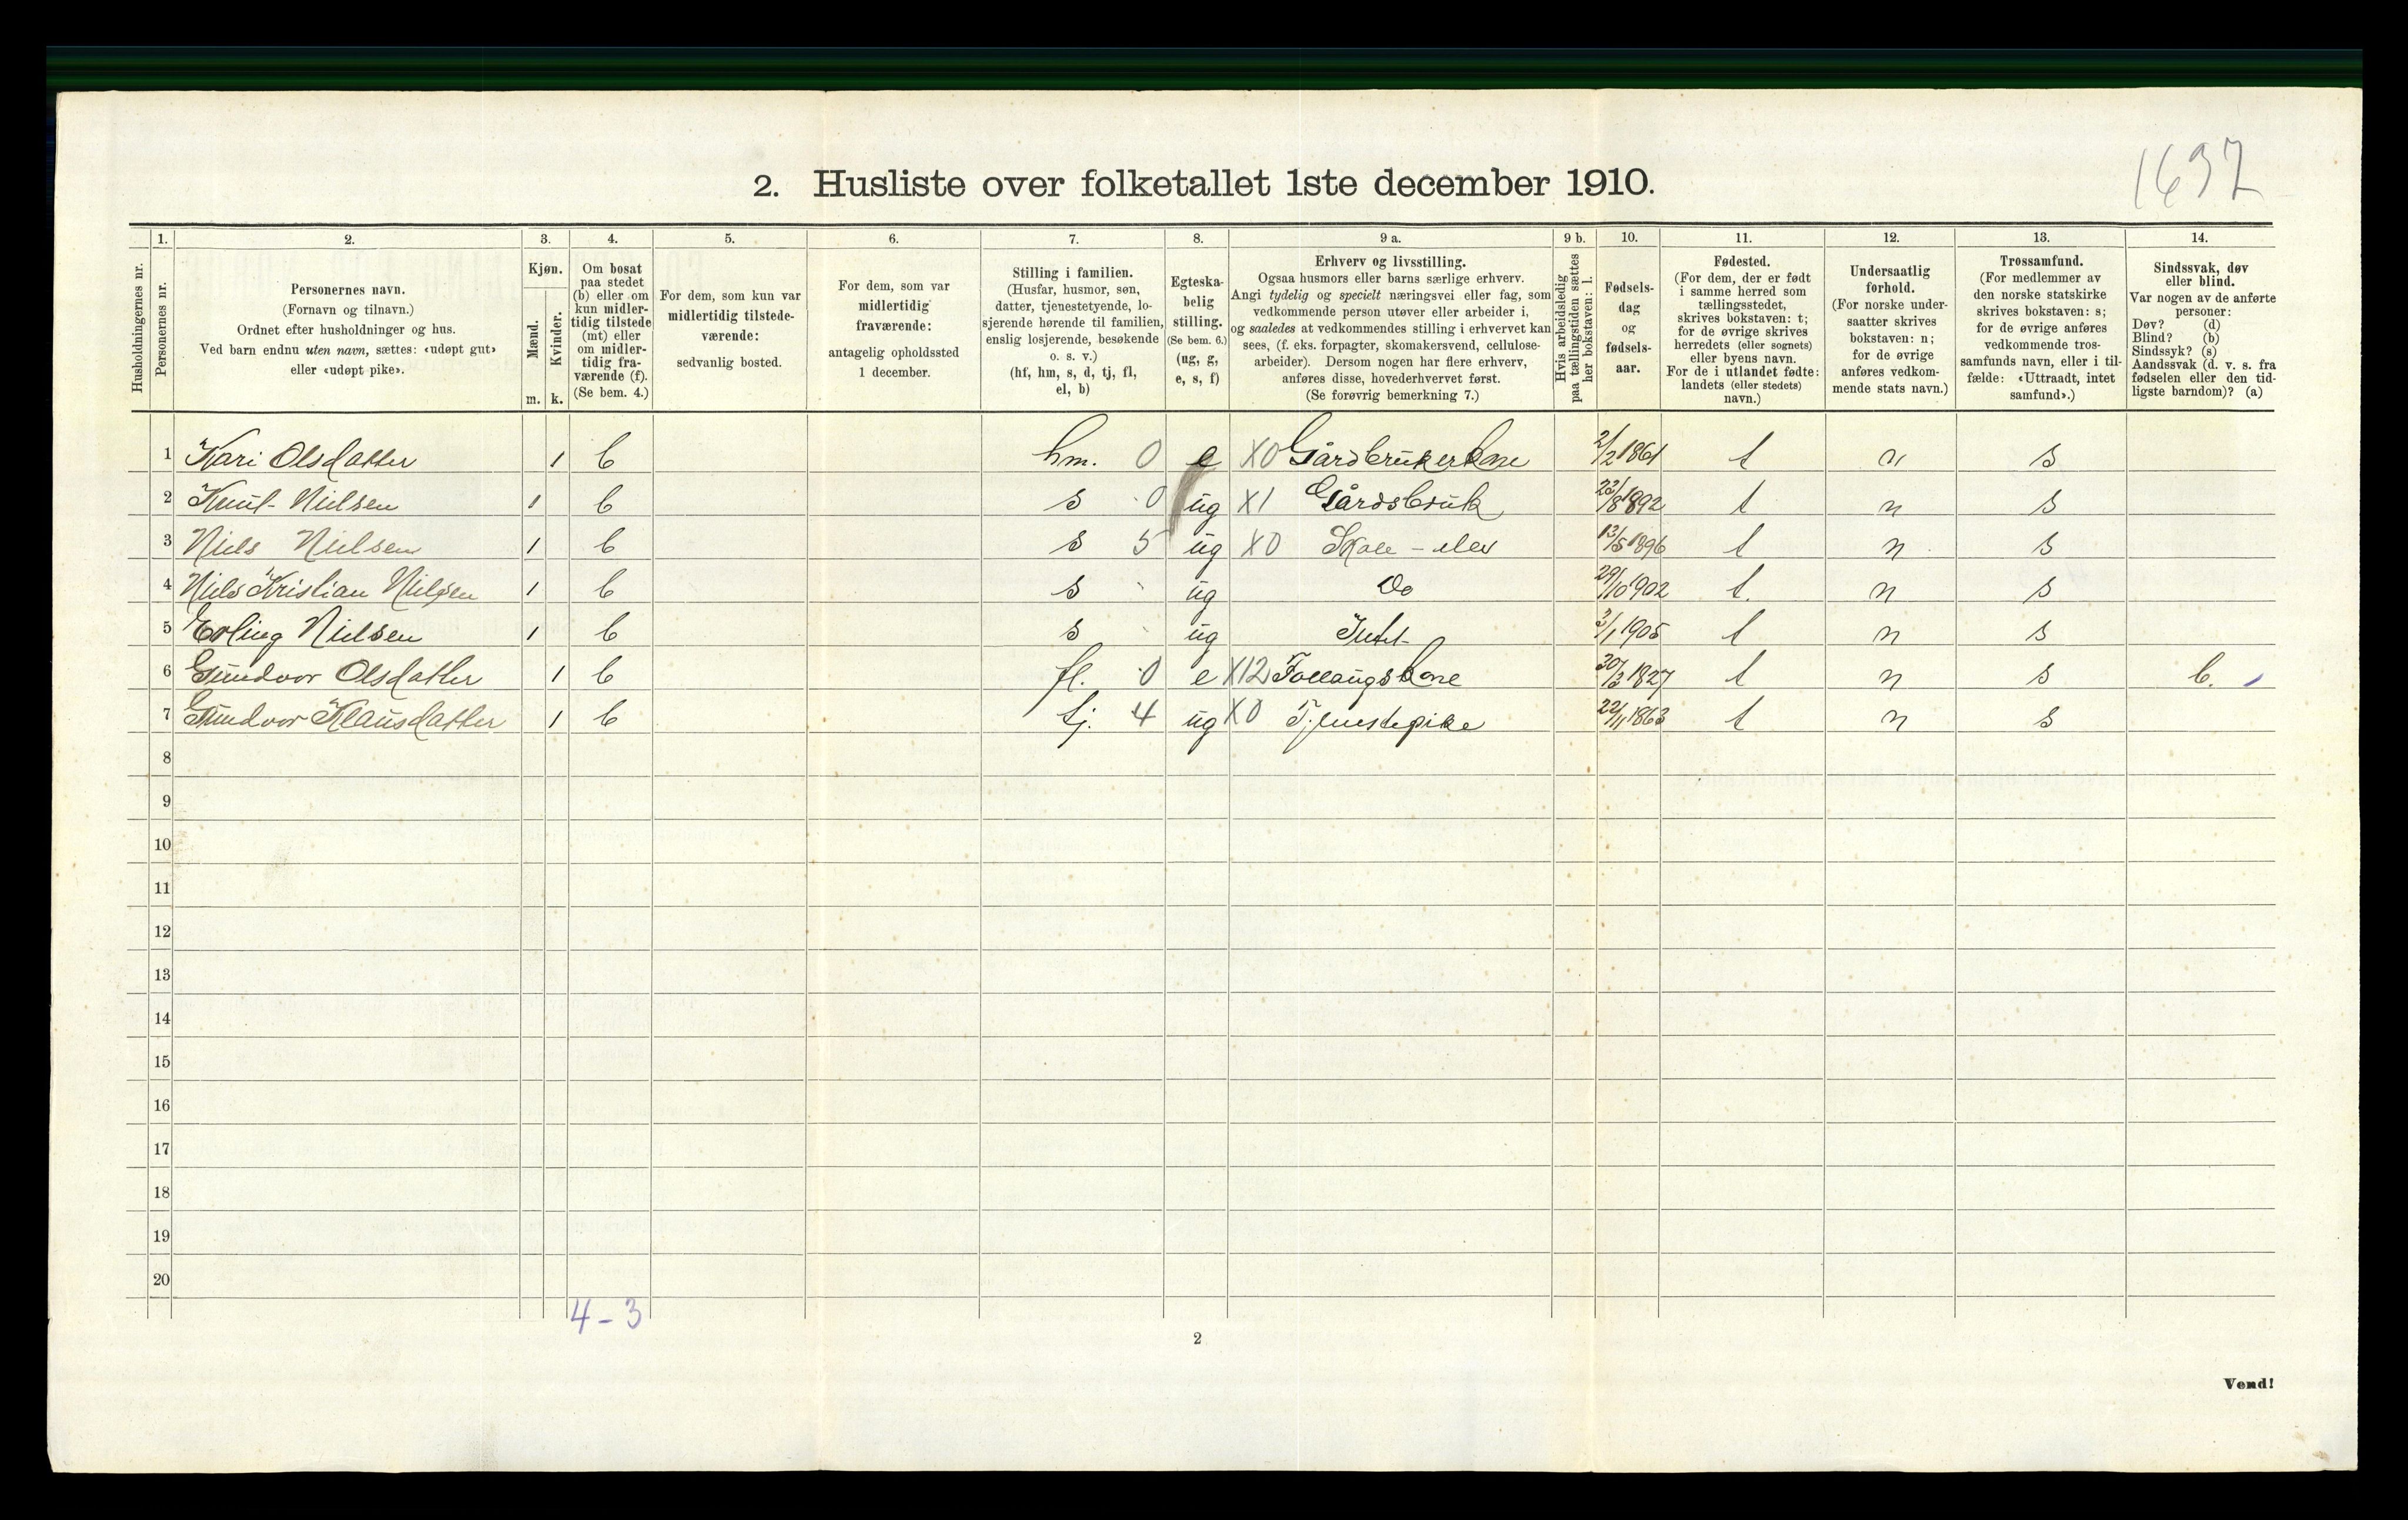 1637
2. Husliste over folketallet 1ste december 1910.
Husholdningernes nr.
1. Personernes nr.
2. Personernes navn.
(Fornavn og tilnavn.)
Ordnet efter husholdninger og hus.
Ved barn endnu uten navn, sættes: «udøpt gut»
eller «udøpt pike».
3. Kjøn.
Mænd. m.
Kvinder. k.
4. Om bosat
paa stedet
(b) eller om
kun midler-
tidig tilstede
(mt) eller
om midler-
tidig fra-
værende (f).
(Se bem. 4.)
5. For dem, som kun var
midlertidig tilstede-
værende:
sedvanlig bosted.
6. For dem, som var
midlertidig
fraværende:
antagelig opholdssted
1 december.
7. Stilling i familien.
(Husfar, husmor, søn,
datter, tjenestetyende, lo-
sjerende hørende til familien,
enslig losjerende, besøkende
o. s. v.)
(hf, hm, s, d, tj, fl,
el, b)
8. Egteska-
belig
stilling.
(Se bem. 6.)
(ug, g,
e, s, f)
9 a. Erhverv og livsstilling.
Ogsaa husmors eller barns særlige erhverv.
Angi tydelig og specielt næringsvei eller fag, som
vedkommende person utøver eller arbeider i,
og saaledes at vedkommendes stilling i erhvervet kan
sees, (f. eks. forpagter, skomakersvend, cellulose-
arbeider). Dersom nogen har flere erhverv,
anføres disse, hovederhvervet først.
(Se forøvrig bemerkning 7.)
9 b. Hvis arbeidsledig
paa tællingstiden sættes
her bokstaven: l.
10. Fødsels-
dag
og
fødsels-
aar.
11. Fødested.
(For dem, der er født
i samme herred som
tællingsstedet,
skrives bokstaven: t;
for de øvrige skrives
herredets (eller sognets)
eller byens navn.
For de i utlandet fødte:
landets (eller stedets)
navn.)
12. Undersaatlig
forhold.
(For norske under-
saatter skrives
bokstaven: n;
for de øvrige
anføres vedkom-
mende stats navn.)
13. Trossamfund.
(For medlemmer av
den norske statskirke
skrives bokstaven: s;
for de øvrige anføres
vedkommende tros-
samfunds navn, eller i til-
fælde: «Uttraadt, intet
samfund».)
14. Sindssvak, døv
eller blind.
Var nogen av de anførte
personer:
Døv? (d)
Blind? (b)
Sindssyk? (s)
Aandssvak (d. v. s. fra
fødselen eller den tid-
ligste barndom)? (a)
1 Kari Olsdatter 1 b hm. 0 e X0 Gårdbrukerkone 2/2 1861 t n s
2 Knut Nielsen 1 b s 0 ug X1 Gårdsbruk 23/8 1892 t n s
3 Niels Nielsen 1 b s 5 ug X0 Skole-elev 13/5 1896 t n s
4 Niels Kristian Nielsen 1 b s ug Do 29/10 1902 t. n s
5 Erling Nielsen 1 b s ug Intet 3/1 1905 t n s
6 Gundvor Olsdatter 1 b fl. 0 e X12 Føllaugskone 30/3 1827 t n s b.
7 Gundvor Klausdatter 1 b tj. 4 ug X0 Tjenestepike 22/11 1863 t n s
8
9
10
11
12
13
14
15
16
17
18
19
20
4-3
2
Vend!